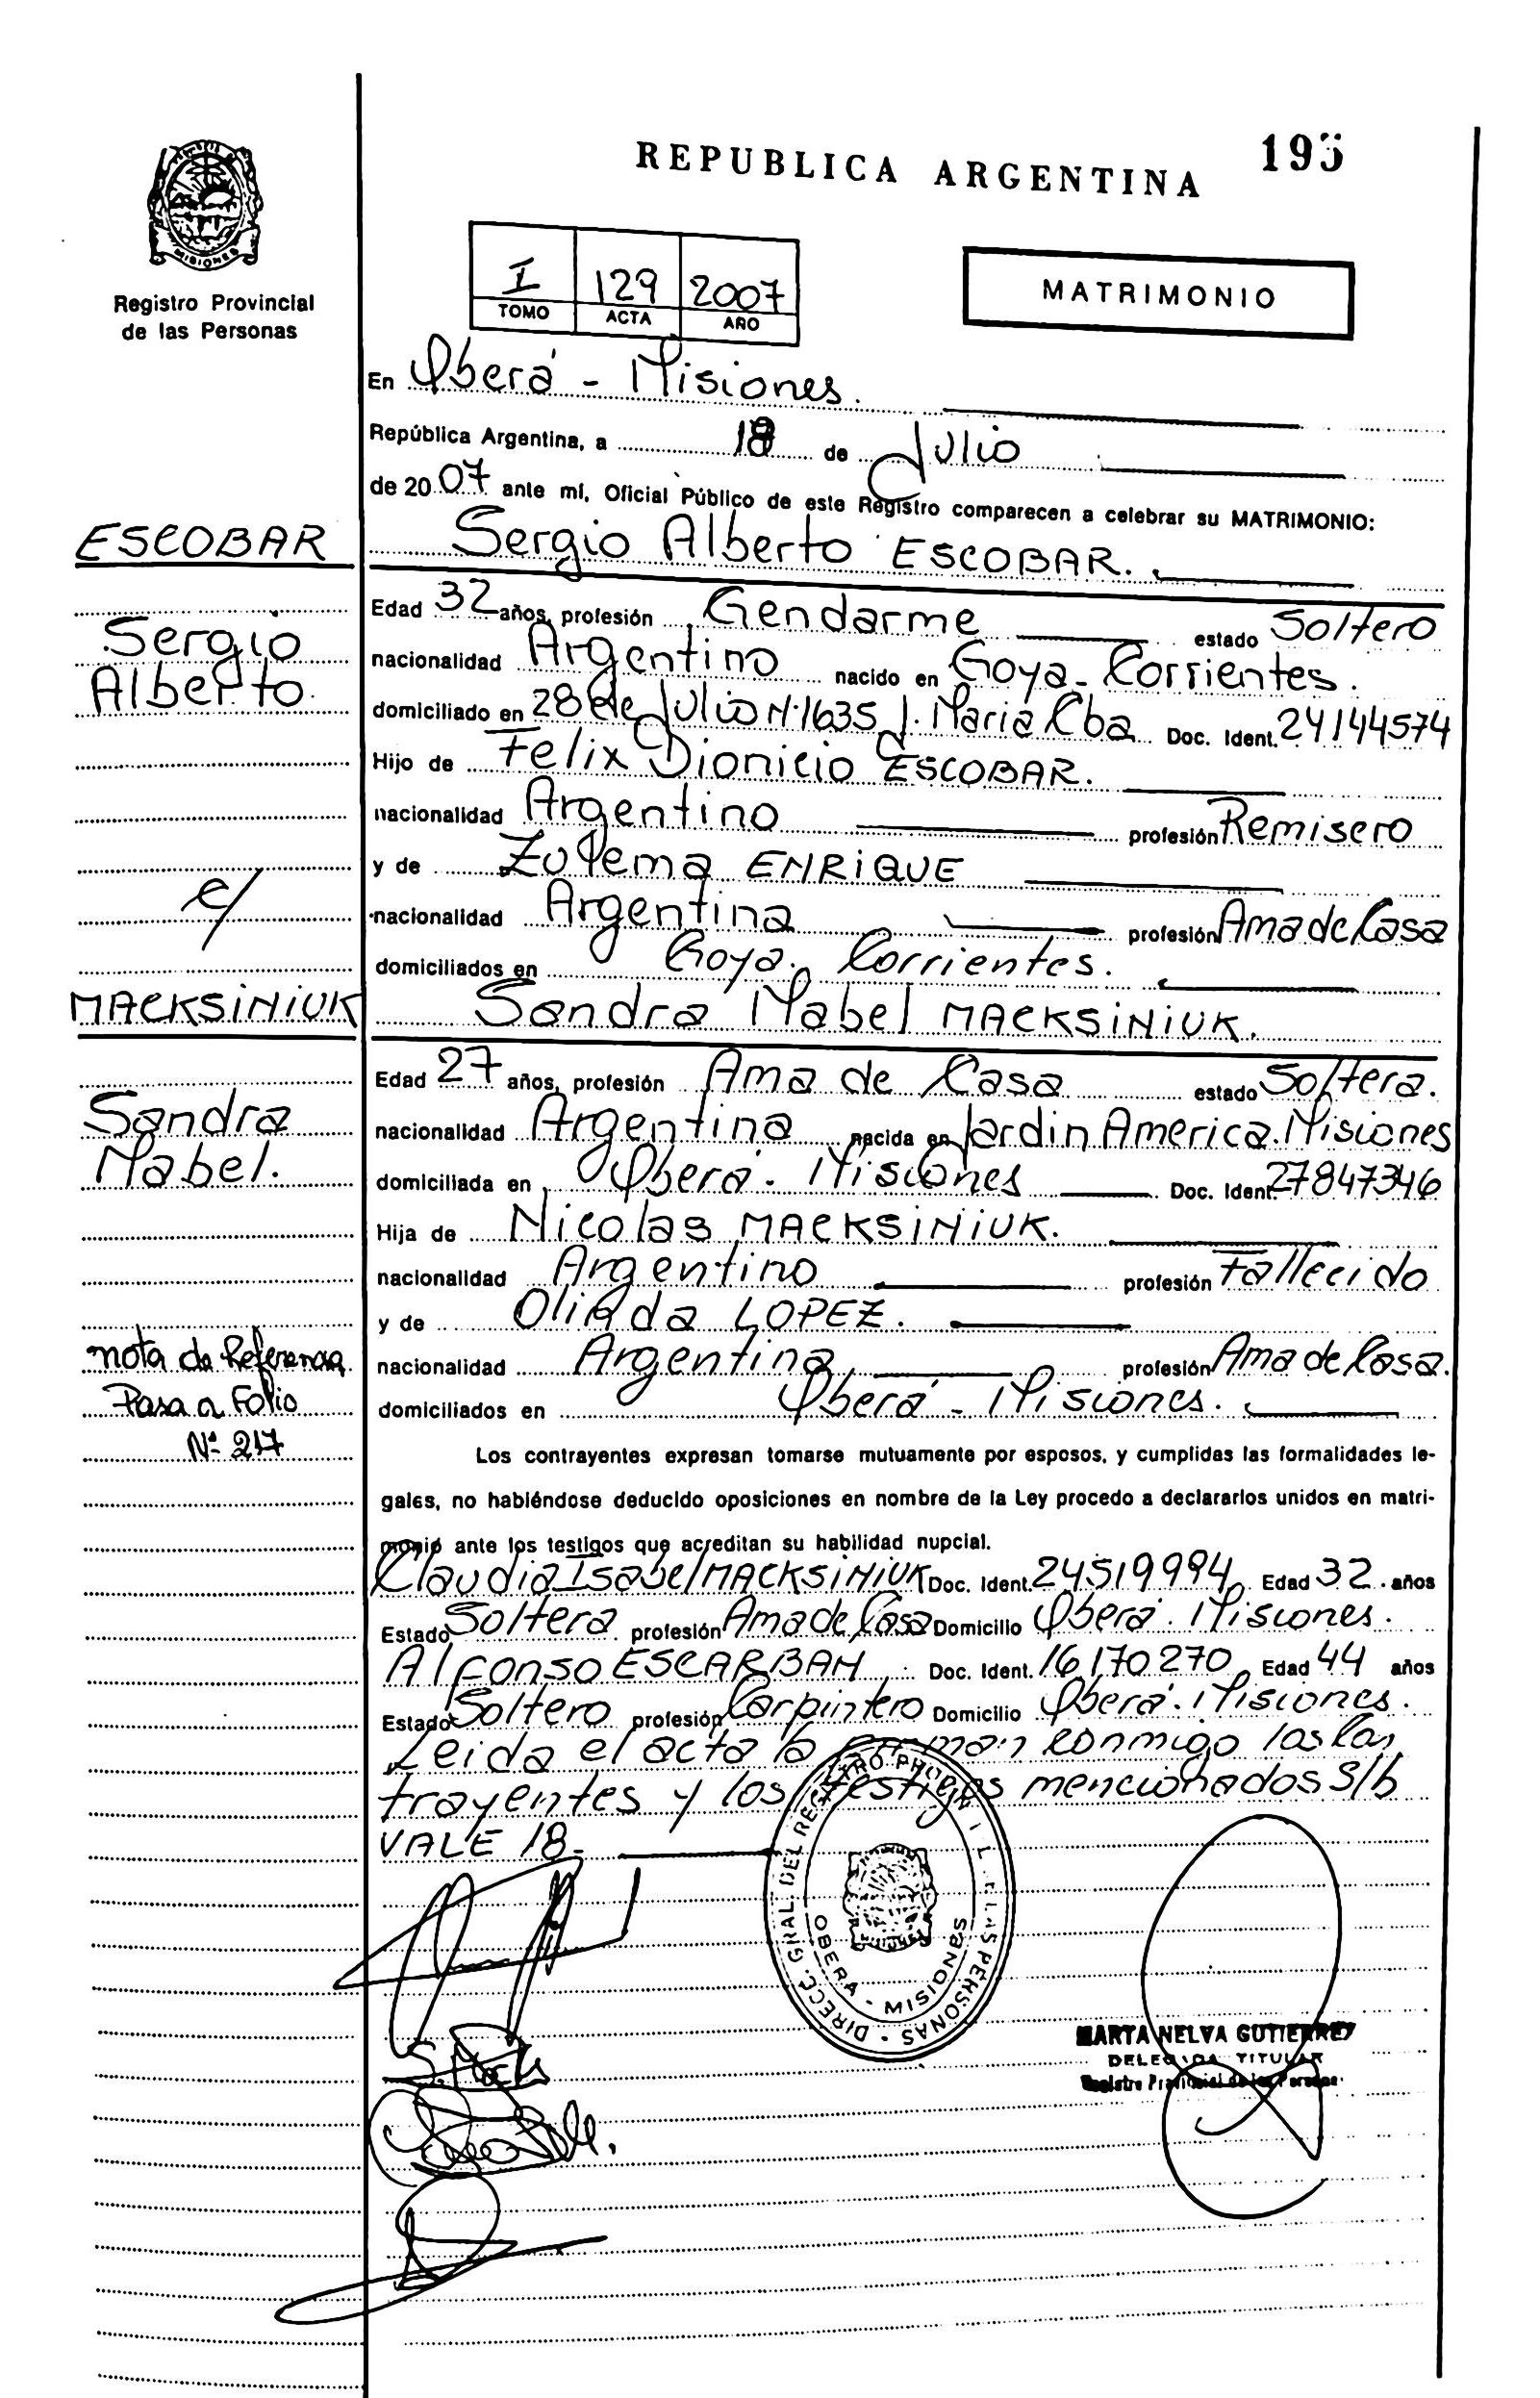 REPUBLICA ARGENTINA
MISIONES
Registro Provincial
de las Personas
I 129 2007
TOMO ACTA AÑO
MATRIMONIO
En Oberá - Misiones.
República Argentina, a 18 de Julio
de 2007 ante mí, Oficial Público de este Registro comparecen a celebrar su MATRIMONIO:
ESCOBAR
Sergio Alberto ESCOBAR.
Sergio
Alberto
Edad 32 años, profesión Gendarme estado Soltero
nacionalidad Argentino nacido en Goya - Corrientes.
domiciliado en 28 de Julio Nº 1635 J. Maria Cba Doc. Ident. 24144574
Hijo de Felix Dionicio ESCOBAR.
nacionalidad Argentino profesión Remisero
y de Zulema ENRIQUE
c/
nacionalidad Argentina profesión Ama de Casa
domiciliados en Goya. Corrientes.
MACKSINIUK
Sandra Mabel MACKSINIUK.
Sandra
Mabel.
Edad 27 años, profesión Ama de Casa estado Soltera.
nacionalidad Argentina nacida en Jardin America. Misiones
domiciliada en Oberá - Misiones Doc. Ident. 27847346
Hija de Nicolas MACKSINIUK.
nacionalidad Argentino profesión Fallecido
y de LOPEZ.
nota de Referencia
Pasa a Folio
Nº 217
nacionalidad Argentina profesión Ama de Casa.
domiciliados en Oberá - Misiones.
Los contrayentes expresan tomarse mutuamente por esposos, y cumplidas las formalidades le-
gales, no habiéndose deducido oposiciones en nombre de la Ley procedo a declararlos unidos en matri-
monio ante los testigos que acreditan su habilidad nupcial.
Claudia Isabel MACKSINIUK Doc. Ident. 24519994 Edad 32. años
Estado Soltera profesión Ama de Casa Domicilio Oberá. Misiones.
Alfonso ESCARBAN Doc. Ident. 16170270 Edad 44 años
Estado Soltero profesión Carpintero Domicilio Oberá. Misiones.
Leida el acta la firman conmigo los Con
trayentes y los testigos mencionados S/b
VALE 18-
DIRECC. GRAL. DEL REGISTRO LAS PERSONAS
OBERA - MISIONES
MARTA NELVA GUTIERREZ
DELEGADA TITULAR
Registro Provincial de las Personas